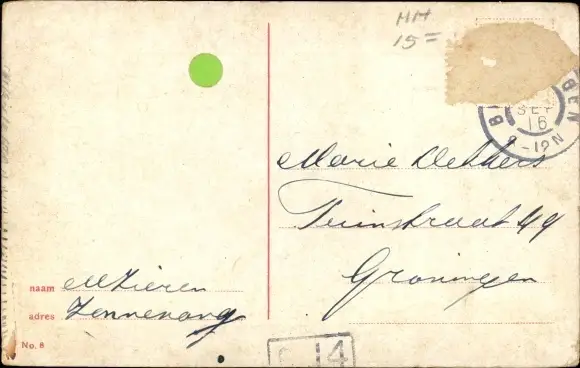 HH
15=
SEP
16
9-12N
Marie Dekkers
Tuinstraat 49
Groningen
naam MZieren
adres Zennewang
No. 8
14